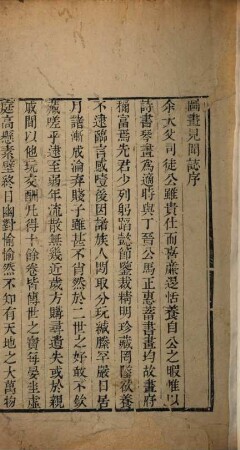 圖畫見聞誌序
余大父司徒公雖貴仕而喜廉退恬養自公之暇惟以
詩書琴畫為適時與丁晉公馬正惠蓄書畫均故畫府
稱富焉先君少列躬蹈懿節鑒裁精明珍藏罔墜欲養
不逮臨言感噎後因諸族人間取分玩緘縢罕嚴日居
月諸漸成淪棄賤子雖甚不肖然於二世之好敢不欽
藏嗟乎逮至弱年流散無幾近歲方購尋遺失或於親
戚間以他玩交酬凡得十餘卷皆傳世之寶每宴坐虛
庭高懸素壁終日幽對愉愉然不知有天地之大萬物